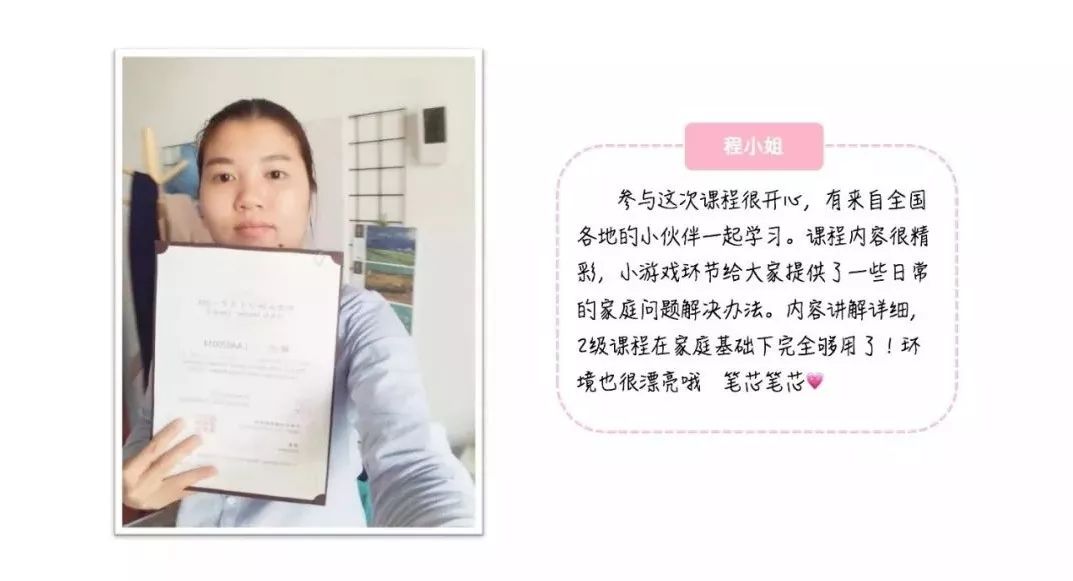 程小姐
参与这次课程很开心，有来自全国
各地的小伙伴一起学习。课程内容很精
彩，小游戏环节给大家提供了一些日常
的家庭问题解决办法。内容讲解详细，
2级课程在家庭基础下完全够用了！环
境也很漂亮哦 笔芯笔芯💗